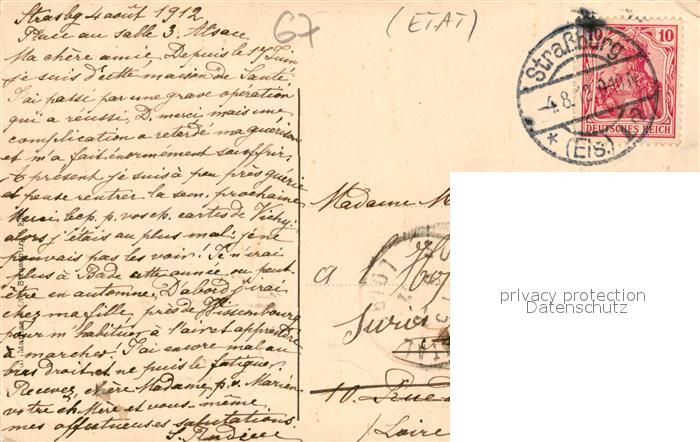 Strasbg 4 août 1912
Place au sable 3. Alsace
Ma chère amie, Depuis le 17 Juin
je suis d'ette maison de Santé
J'ai passé par une grave opération
qui a réussi, D. merci mais une
complication a retardé ma guérison
et m'a fait énormément souffrir.
A présent je suis à peu près guérie
et pense rentrer la sem. prochaine
Merci bcp. p. vos cartes de Vichy
alors j'étais au plus mal: je ne
pouvais pas les voir! Je n'irai
plus à Bade cette année ou peut-
être en automne. D'abord j'irai
chez ma fille, près de Wissembourg
pour m'habituer à l'air et apprendre
à marcher! J'ai encore mal au
bras droit et ne puis le fatiguer.
Recevez, chère Madame, p. v. Marien
votre ch. Mère et vous-même,
mes affectueuses salutations
67
(ETAT)
Straßburg
4.8.12
* (Els.) 1a
10
DEUTSCHES REICH
Madame M
a
10. Rue
(Loire
privacy protection
Datenschutz